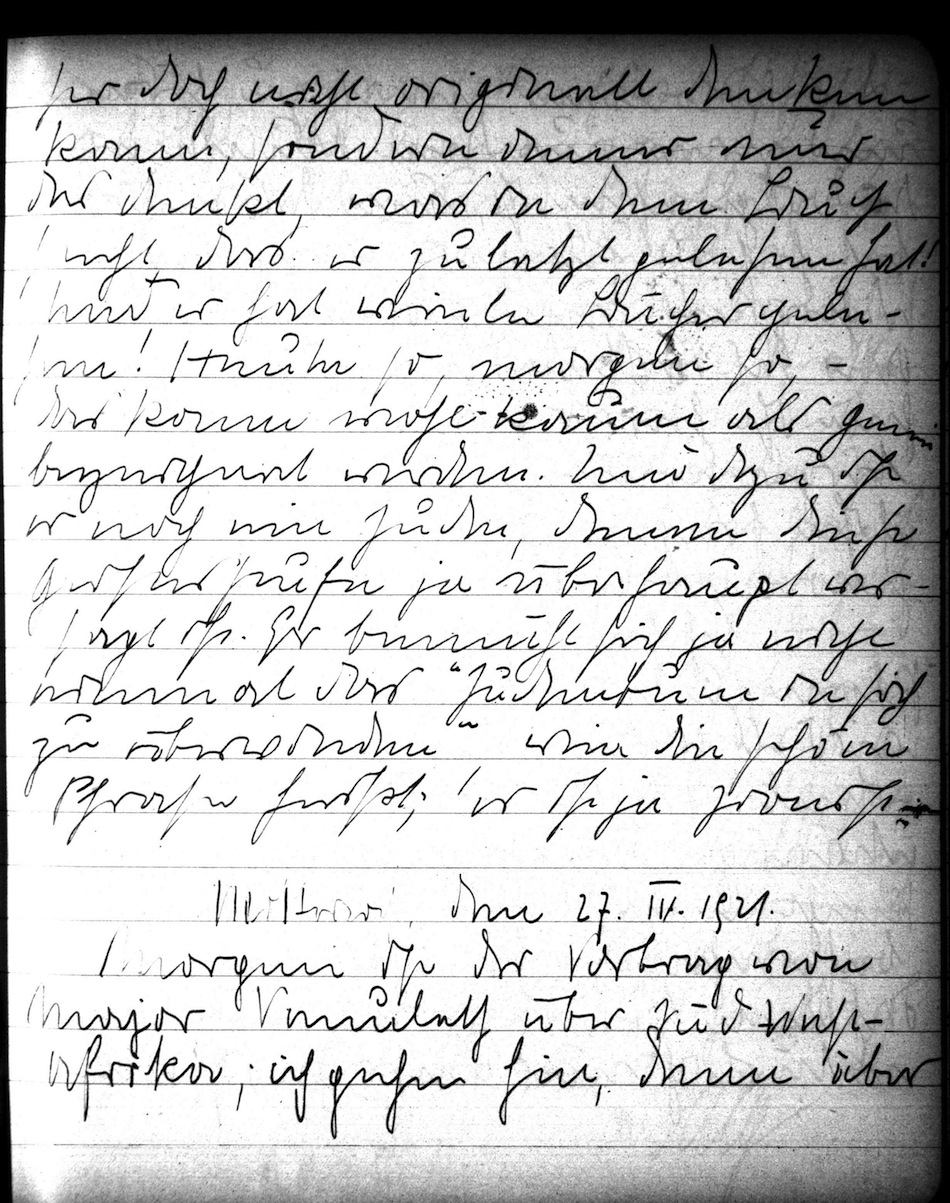 er doch nicht originell denken
kann, sondern immer nur
das denkt, was in dem Buch
steht das er zuletzt gelesen hat!
Und er hat viele Bücher gele-
sen! Heute so, morgen so, –
das kann wohl kaum als
bezeichnet werden. Und dazu ist
er noch ein Jude, denen diese
ja überhaupt ver-
sagt ist. Er bemüht sich ja nicht
einmal das "Judentum in sich
zu überwinden" wie die schöne
Phrase heißt; er ist ja
den 27. IV. 1921.
Morgen ist der Vortrag von
Major über Süd-West-
afrika; ich gehe hin, denn über